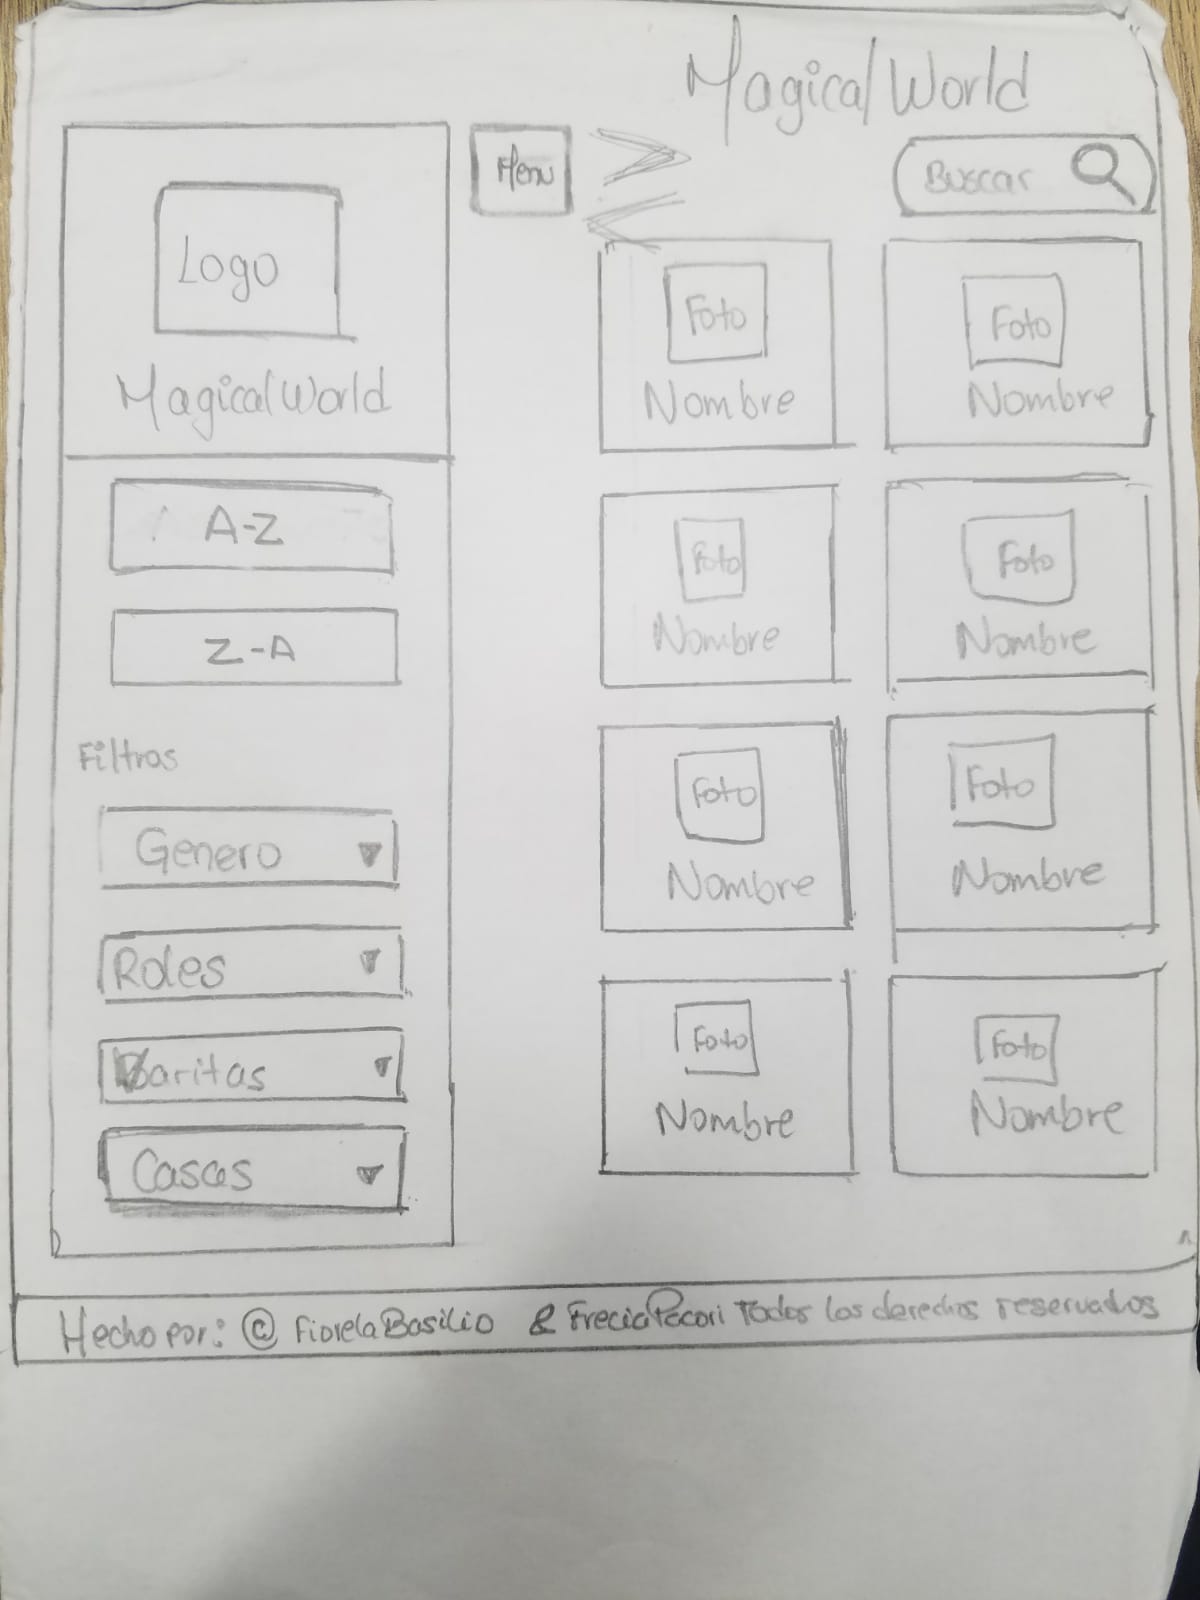 Magical World
Menu
Buscar
Logo
Magical World
A-Z
Z-A
Filtros
Genero
Roles
Varitas
Casas
Foto
Nombre
Foto
Nombre
Foto
Nombre
Foto
Nombre
Foto
Nombre
Foto
Nombre
Foto
Nombre
Foto
Nombre
Hecho por: © Fiorela Basilio & Frecia Pacori Todos los derechos reservados